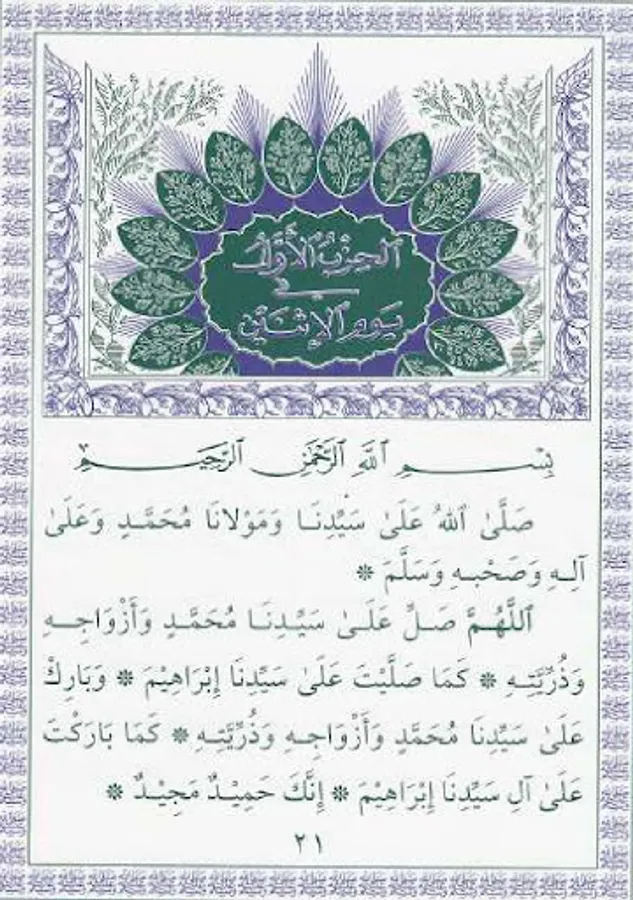 الحِزْبُ الأَوَّلُ
في
يَوْمِ الإِثْنَيْنِ
بِسْمِ اللَّهِ الرَّحْمَٰنِ الرَّحِيمِ
صَلَّىٰ اللَّهُ عَلَىٰ سَيِّدِنَا وَمَوْلَانَا مُحَمَّدٍ وَعَلَىٰ
آلِهِ وَصَحْبِهِ وَسَلَّمَ ❊
اللَّهُمَّ صَلِّ عَلَىٰ سَيِّدِنَا مُحَمَّدٍ وَأَزْوَاجِهِ
وَذُرِّيَّتِهِ ❊ كَمَا صَلَّيْتَ عَلَىٰ سَيِّدِنَا إِبْرَاهِيْمَ ❊ وَبَارِكْ
عَلَىٰ سَيِّدِنَا مُحَمَّدٍ وَأَزْوَاجِهِ وَذُرِّيَّتِهِ ❊ كَمَا بَارَكْتَ
عَلَىٰ آلِ سَيِّدِنَا إِبْرَاهِيْمَ ❊ إِنَّكَ حَمِيْدٌ مَجِيْدٌ ❊
٢١